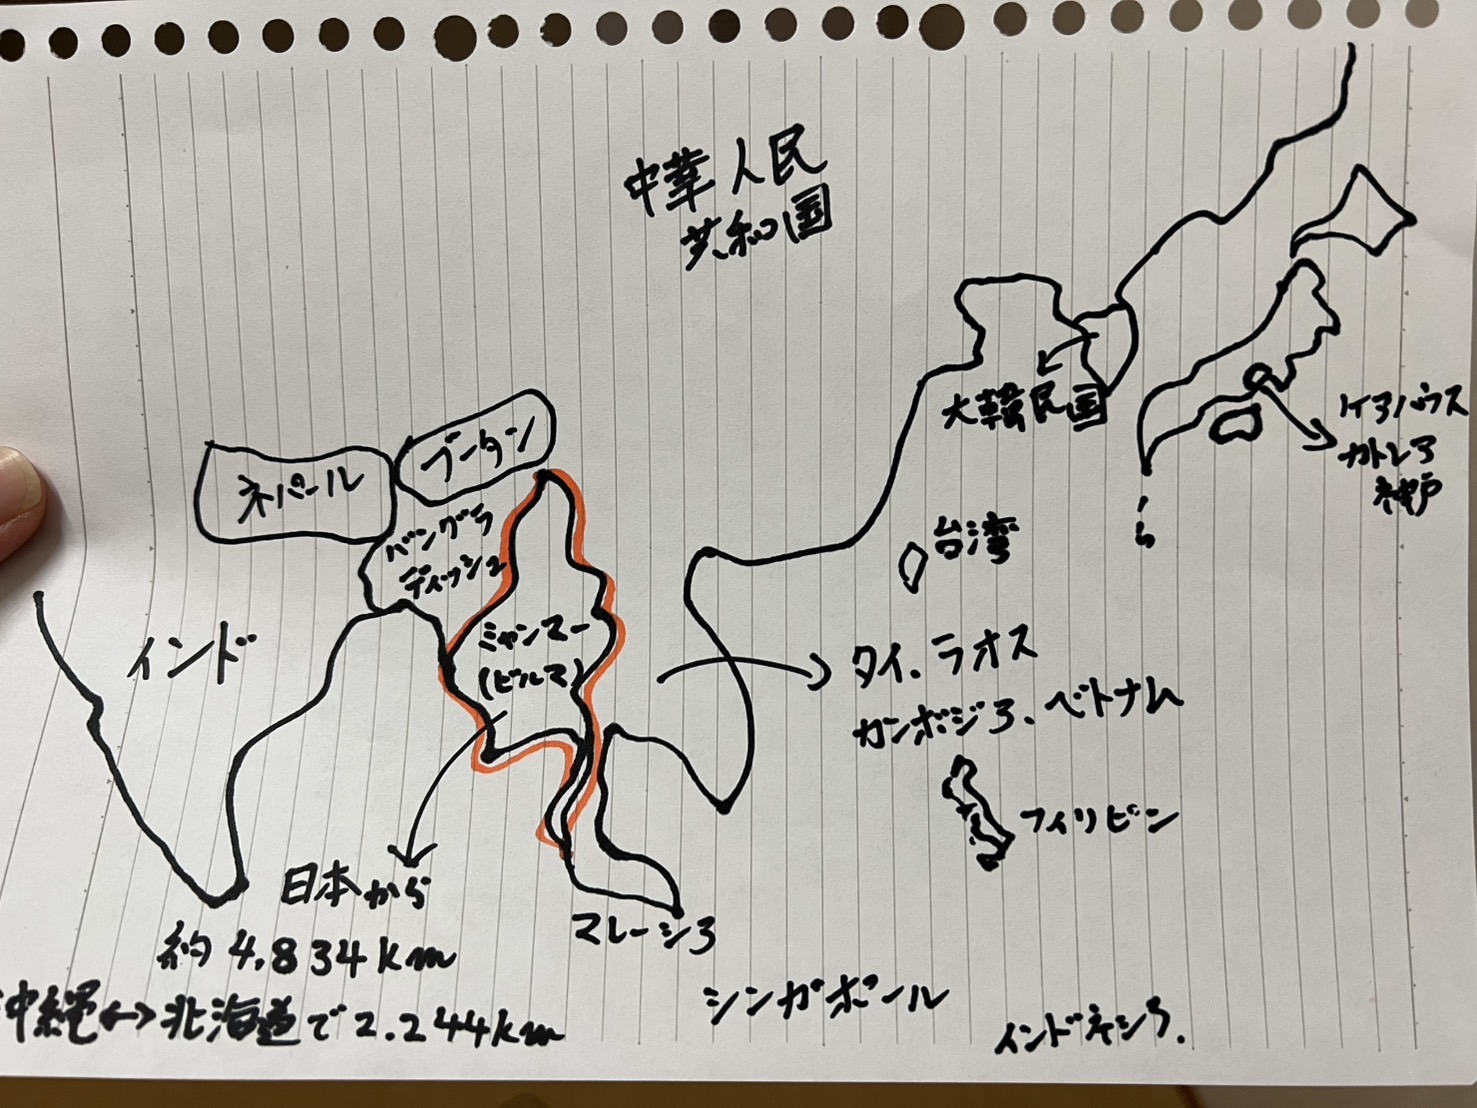 中華人民
共和国
大韓民国
ケアハウス
カトレア
神戸
ネパール
ブータン
バングラ
ディッシュ
台湾
インド
ミャンマー
(ビルマ)
タイ、ラオス
カンボジア、ベトナム
フィリピン
日本から
約4,834km
マレーシア
シンガポール
沖縄↔北海道で2.244km
インドネシア.